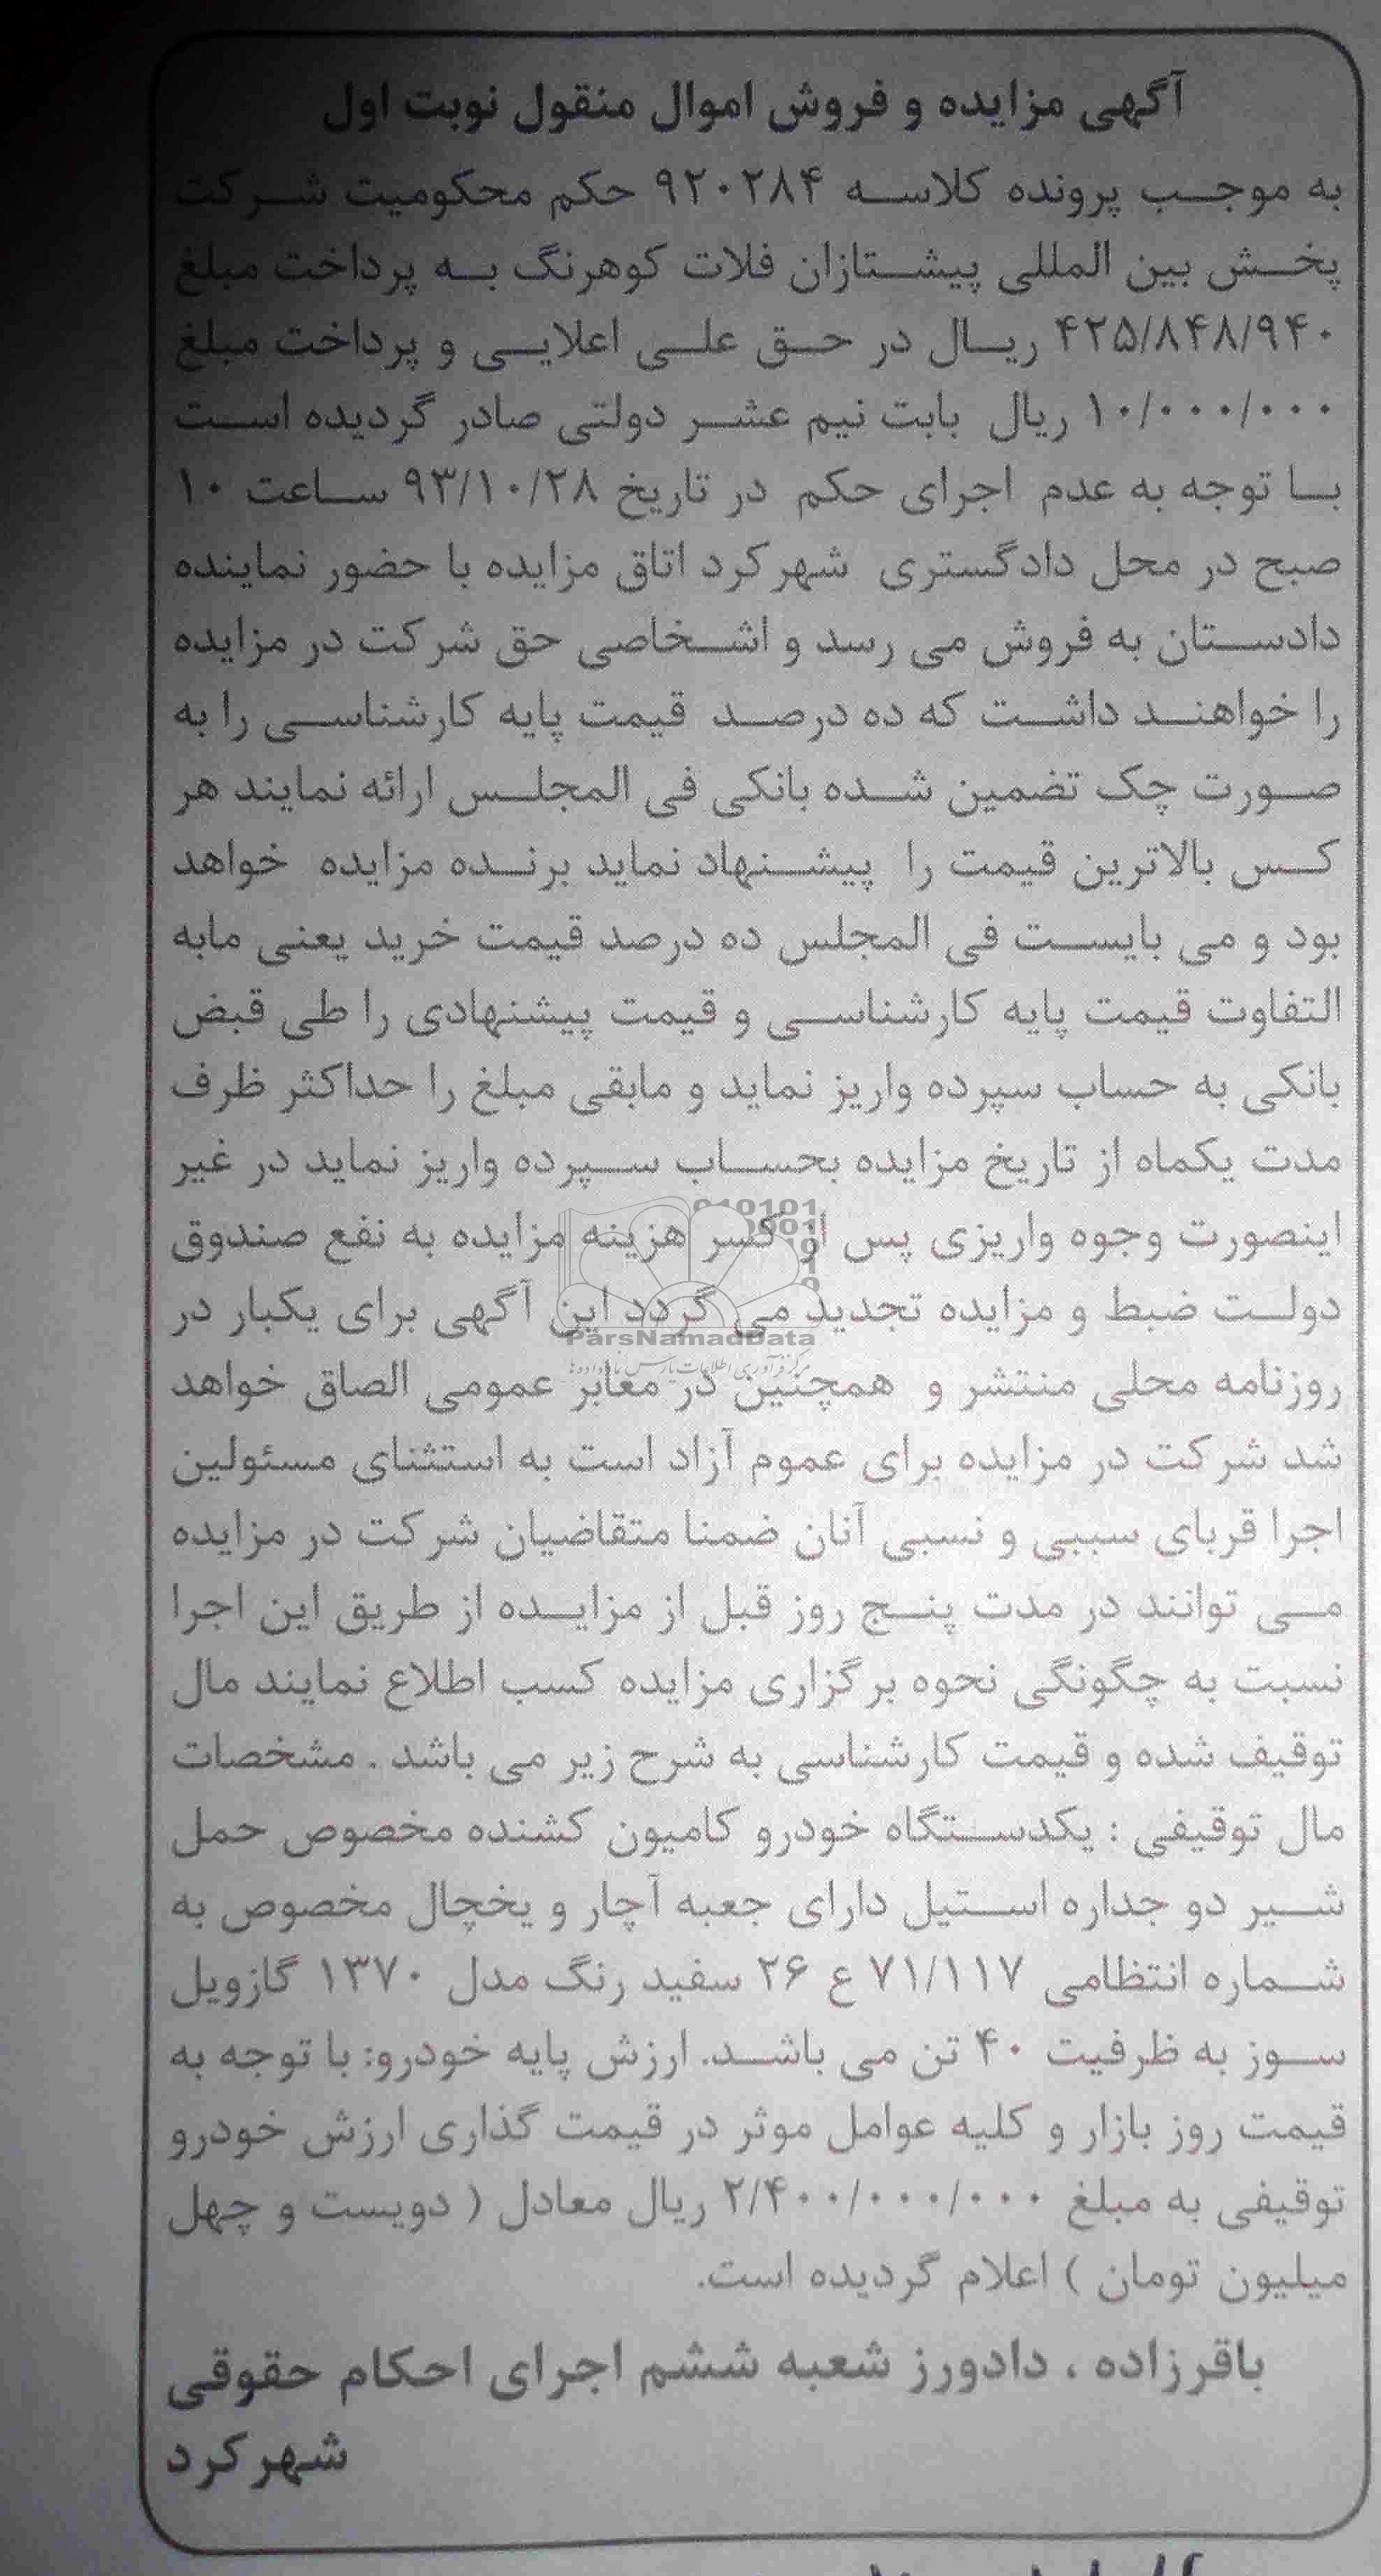 آگهی مزایده و فروش اموال منقول نوبت اول
به موجب پرونده کلاسه ۹۲۰۲۸۴ حکم محکومیت شرکت
پخش بین المللی پیشتازان فلات کوهرنگ به پرداخت مبلغ
۴۲۵/۸۴۸/۹۴۰ ریال در حق علی اعلایی و پرداخت مبلغ
۱۰/۰۰۰/۰۰۰ ریال بابت نیم عشر دولتی صادر گردیده است
با توجه به عدم اجرای حکم در تاریخ ۹۳/۱۰/۲۸ ساعت ۱۰
صبح در محل دادگستری شهرکرد اتاق مزایده با حضور نماینده
دادستان به فروش می رسد و اشخاصی حق شرکت در مزایده
را خواهند داشت که ده درصد قیمت پایه کارشناسی را به
صورت چک تضمین شده بانکی فی المجلس ارائه نمایند هر
کس بالاترین قیمت را پیشنهاد نماید برنده مزایده خواهد
بود و می بایست فی المجلس ده درصد قیمت خرید یعنی مابه
التفاوت قیمت پایه کارشناسی و قیمت پیشنهادی را طی قبض
بانکی به حساب سپرده واریز نماید و مابقی مبلغ را حداکثر ظرف
مدت یکماه از تاریخ مزایده بحساب سپرده واریز نماید در غیر
اینصورت وجوه واریزی پس از کسر هزینه مزایده به نفع صندوق
دولت ضبط و مزایده تجدید می گردد این آگهی برای یکبار در
ParsNamadData
مرکز فرآوری اطلاعات پارس نماد داده ها
روزنامه محلی منتشر و همچنین در معابر عمومی الصاق خواهد
شد شرکت در مزایده برای عموم آزاد است به استثنای مسئولین
اجرا قربای سببی و نسبی آنان ضمنا متقاضیان شرکت در مزایده
می توانند در مدت پنج روز قبل از مزایده از طریق این اجرا
نسبت به چگونگی نحوه برگزاری مزایده کسب اطلاع نمایند مال
توقیف شده و قیمت کارشناسی به شرح زیر می باشد . مشخصات
مال توقیفی : یکدستگاه خودرو کامیون کشنده مخصوص حمل
شیر دو جداره استیل دارای جعبه آچار و یخچال مخصوص به
شماره انتظامی ۷۱/۱۱۷ ع ۲۶ سفید رنگ مدل ۱۳۷۰ گازویل
سوز به ظرفیت ۴۰ تن می باشد. ارزش پایه خودرو: با توجه به
قیمت روز بازار و کلیه عوامل موثر در قیمت گذاری ارزش خودرو
توقیفی به مبلغ ۲/۴۰۰/۰۰۰/۰۰۰ ریال معادل ( دویست و چهل
میلیون تومان ) اعلام گردیده است.
باقرزاده ، دادورز شعبه ششم اجرای احکام حقوقی
شهرکرد